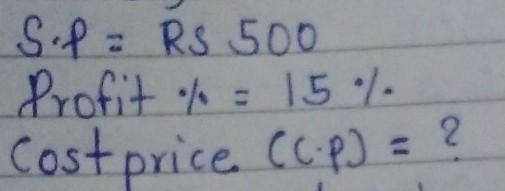 S.P = RS 500
Profit % = 15 %.
Cost price (C.P) = ?